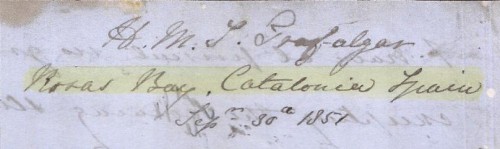 H. M. S. Trafalgar.
Rosas Bay, Catalonia Spain
Sep.ʳ 30ᵗʰ 1851